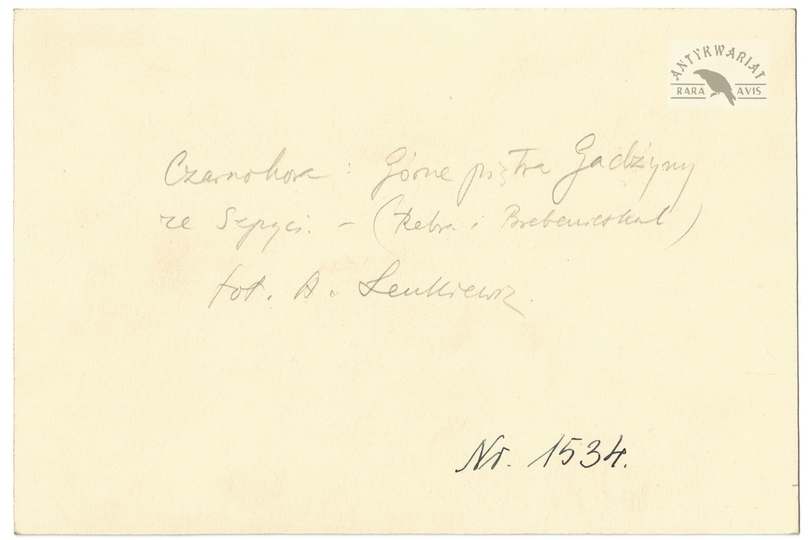 ANTYKWARIAT
RARA AVIS
Czarnohora : Górne piętra Gadżyny
ze Szpyci. – (Rebra i Brebenieskul)
fot. A. Lenkiewicz.
Nr. 1534.